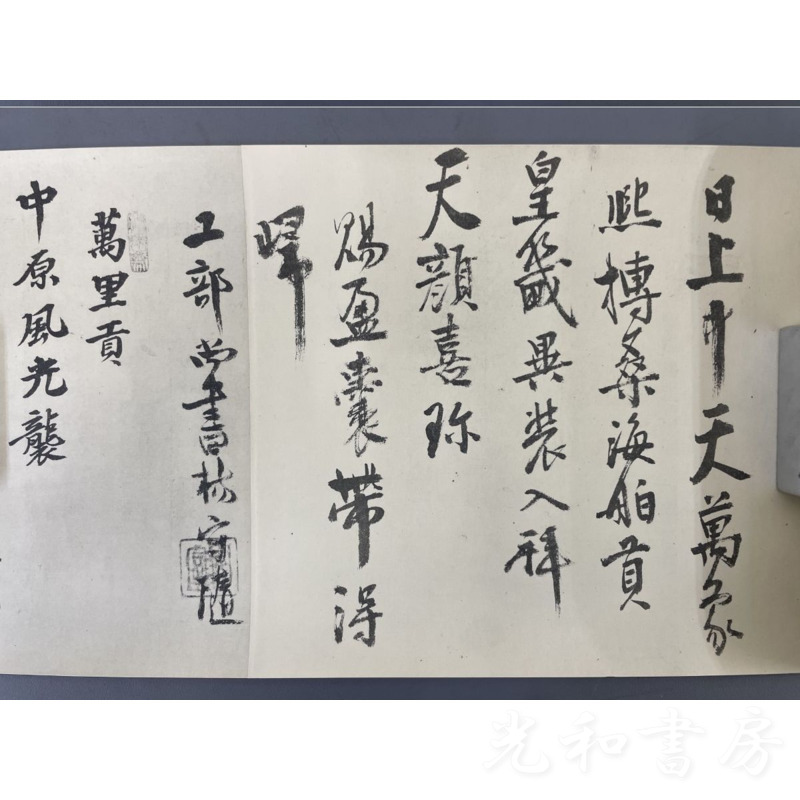 日上中天萬象
熙榑桑海舶貢
皇畿異裝入拜
天顏喜珎
賜盈囊帶得
歸
工部尚書楊守隨
萬里貢
中原風光襲
光和書房